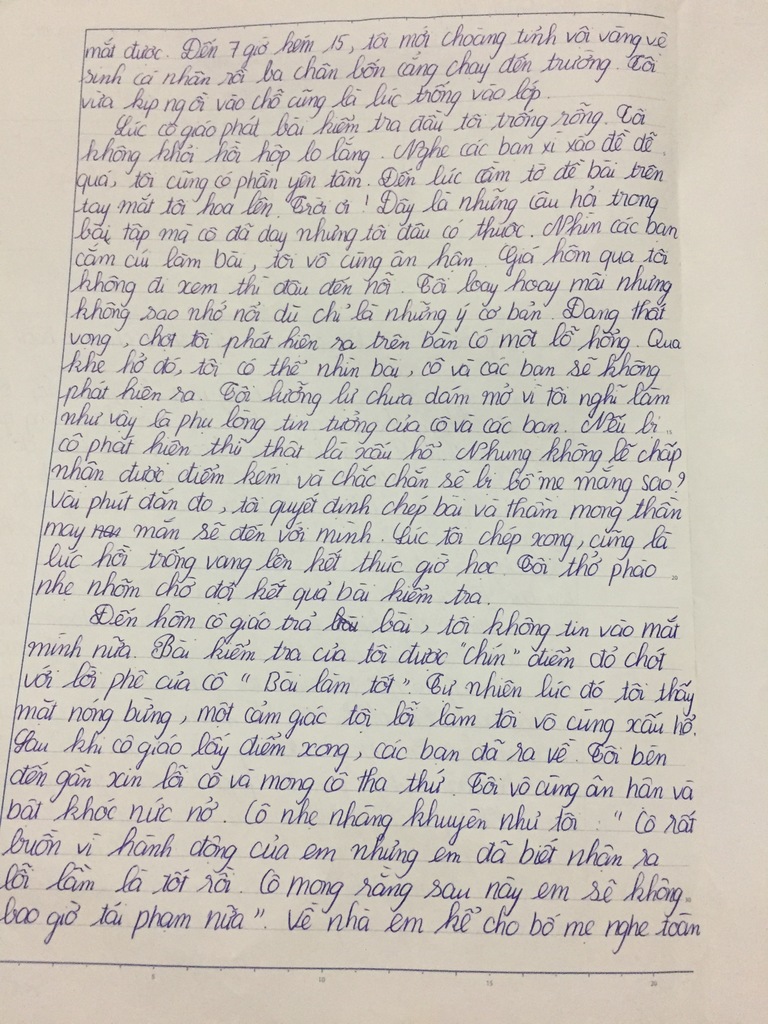 mắt được. Đến 7 giờ kém 15, tôi mới choàng tỉnh vội vàng vệ
sinh cá nhân rồi ba chân bốn cẳng chạy đến trường. Tôi
vừa kịp ngồi vào chỗ cũng là lúc trống vào lớp.
Lúc cô giáo phát bài kiểm tra đầu tôi trống rỗng. Tôi
không khỏi hồi hộp lo lắng. Nghe các bạn xì xào đề dễ
quá, tôi cũng có phần yên tâm. Đến lúc cầm tờ đề bài trên
tay mắt tôi hoa lên. Trời ơi! Đây là những câu hỏi trong
bài tập mà cô đã dạy nhưng tôi đâu có thuộc. Nhìn các bạn
cắm cúi làm bài, tôi vô cùng ân hận. Giá hôm qua tôi
không đi xem thì đâu đến nỗi. Tôi loay hoay mãi nhưng
không sao nhớ nổi dù chỉ là những ý cơ bản. Đang thất
vọng, chợt tôi phát hiện ra trên bàn có một lỗ hổng. Qua
khe hở đó, tôi có thể nhìn bài, cô và các bạn sẽ không
phát hiện ra. Tôi lưỡng lự chưa dám mở vì tôi nghĩ làm
như vậy là phụ lòng tin tưởng của cô và các bạn. Nếu bị
cô phát hiện thì thật là xấu hổ. Nhưng không lẽ chấp
nhận được điểm kém và chắc chắn sẽ bị bố mẹ mắng sao?
Vài phút đắn đo, tôi quyết định chép bài và thầm mong thần
may mắn sẽ đến với mình. Lúc tôi chép xong, cũng là
lúc hồi trống vang lên kết thúc giờ học. Tôi thở phào
nhẹ nhõm chờ đợi kết quả bài kiểm tra.
Đến hôm cô giáo trả bài, tôi không tin vào mắt
mình nữa. Bài kiểm tra của tôi được "chín" điểm đỏ chót
với lời phê của cô "Bài làm tốt". Tự nhiên lúc đó tôi thấy
mặt nóng bừng, một cảm giác tội lỗi làm tôi vô cùng xấu hổ.
Sau khi cô giáo lấy điểm xong, các bạn đã ra về. Tôi bèn
đến gần xin lỗi cô và mong cô tha thứ. Tôi vô cùng ân hận và
bật khóc nức nở. Cô nhẹ nhàng khuyên như tôi: "Cô rất
buồn vì hành động của em nhưng em đã biết nhận ra
lỗi lầm là tốt rồi. Cô mong rằng sau này em sẽ không
bao giờ tái phạm nữa". Về nhà em kể cho bố mẹ nghe toàn
5 10 15 20